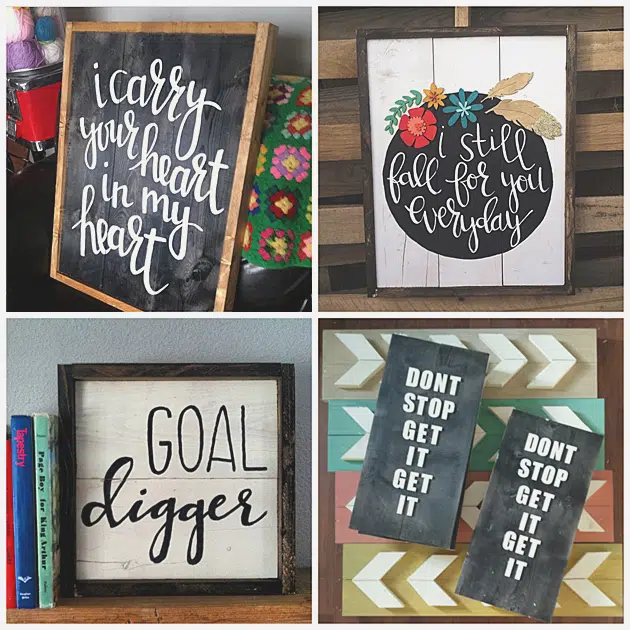 i carry
your heart
in my
heart
i still
fall for you
everyday
GOAL
digger
Tapestry
Page Boy for King Arthur
DONT
STOP
GET
IT
GET
IT
DONT
STOP
GET
IT
GET
IT